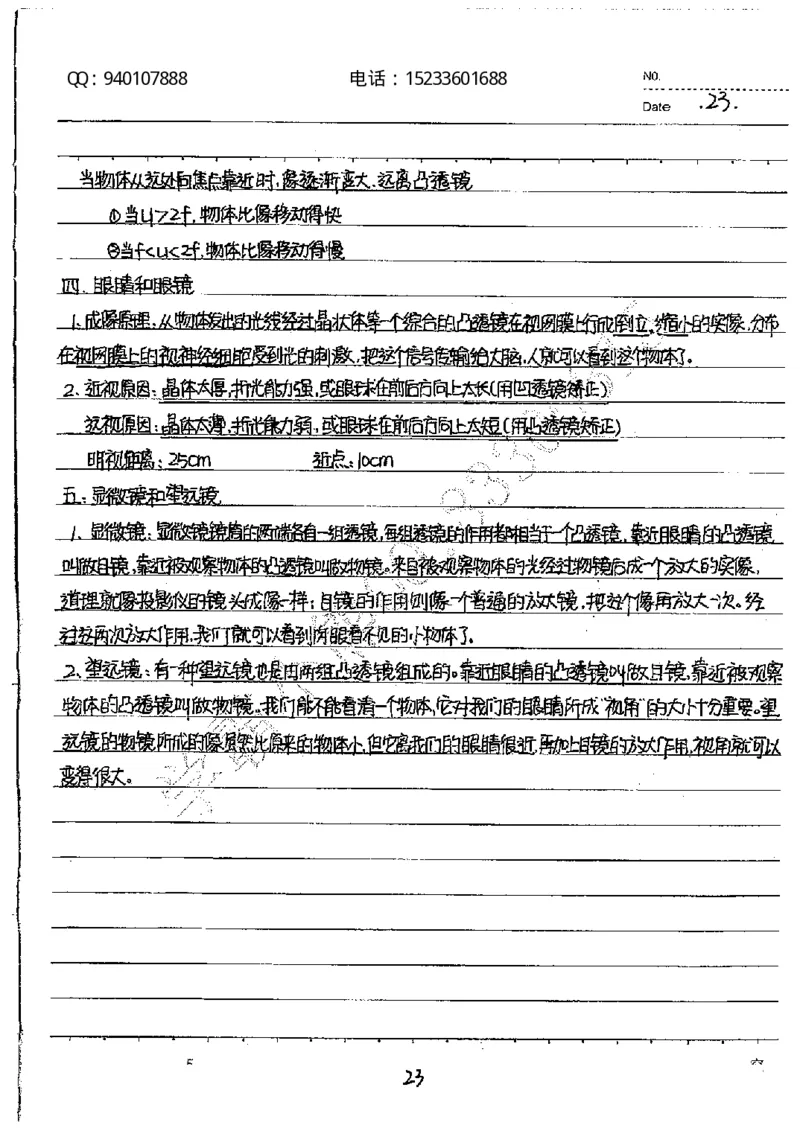 QQ：940107888 电话：15233601688 No.
Date .23.
当物体从远处向焦点靠近时,像逐渐变大、远离凸透镜
①当u>2f,物体比像移动得快
②当f<u<2f,物体比像移动得慢
四、眼睛和眼镜
1、成像原理：从物体发出的光线经过晶状体等一个综合的凸透镜在视网膜上行成倒立、缩小的实像,分布
在视网膜上的视神经细胞受到光的刺激,把这个信号传输给大脑,人就可以看到这个物体了。
2、近视原因：晶体太厚,折光能力强,或眼球在前后方向上太长(用凹透镜矫正)
远视原因：晶体太薄,折光能力弱,或眼球在前后方向上太短(用凸透镜矫正)
明视距离：25cm 近点：10cm
五、显微镜和望远镜
1、显微镜：显微镜镜筒的两端各有一组透镜,每组透镜的作用都相当于一个凸透镜,靠近眼睛的凸透镜
叫做目镜,靠近被观察物体的凸透镜叫做物镜。来自被观察物体的光经过物镜后成一个放大的实像,
道理就像投影仪的镜头成像一样；目镜的作用则像一个普通的放大镜,把这个像再放大一次。经
过这两次放大作用,我们就可以看到肉眼看不见的小物体了。
2、望远镜：有一种望远镜也是由两组凸透镜组成的。靠近眼睛的凸透镜叫做目镜,靠近被观察
物体的凸透镜叫做物镜。我们能不能看清一个物体,它对我们的眼睛所成“视角”的大小十分重要。望
远镜的物镜所成的像虽然比原来的物体小,但它离我们的眼睛很近,再加上目镜的放大作用,视角就可以
变得很大。
23